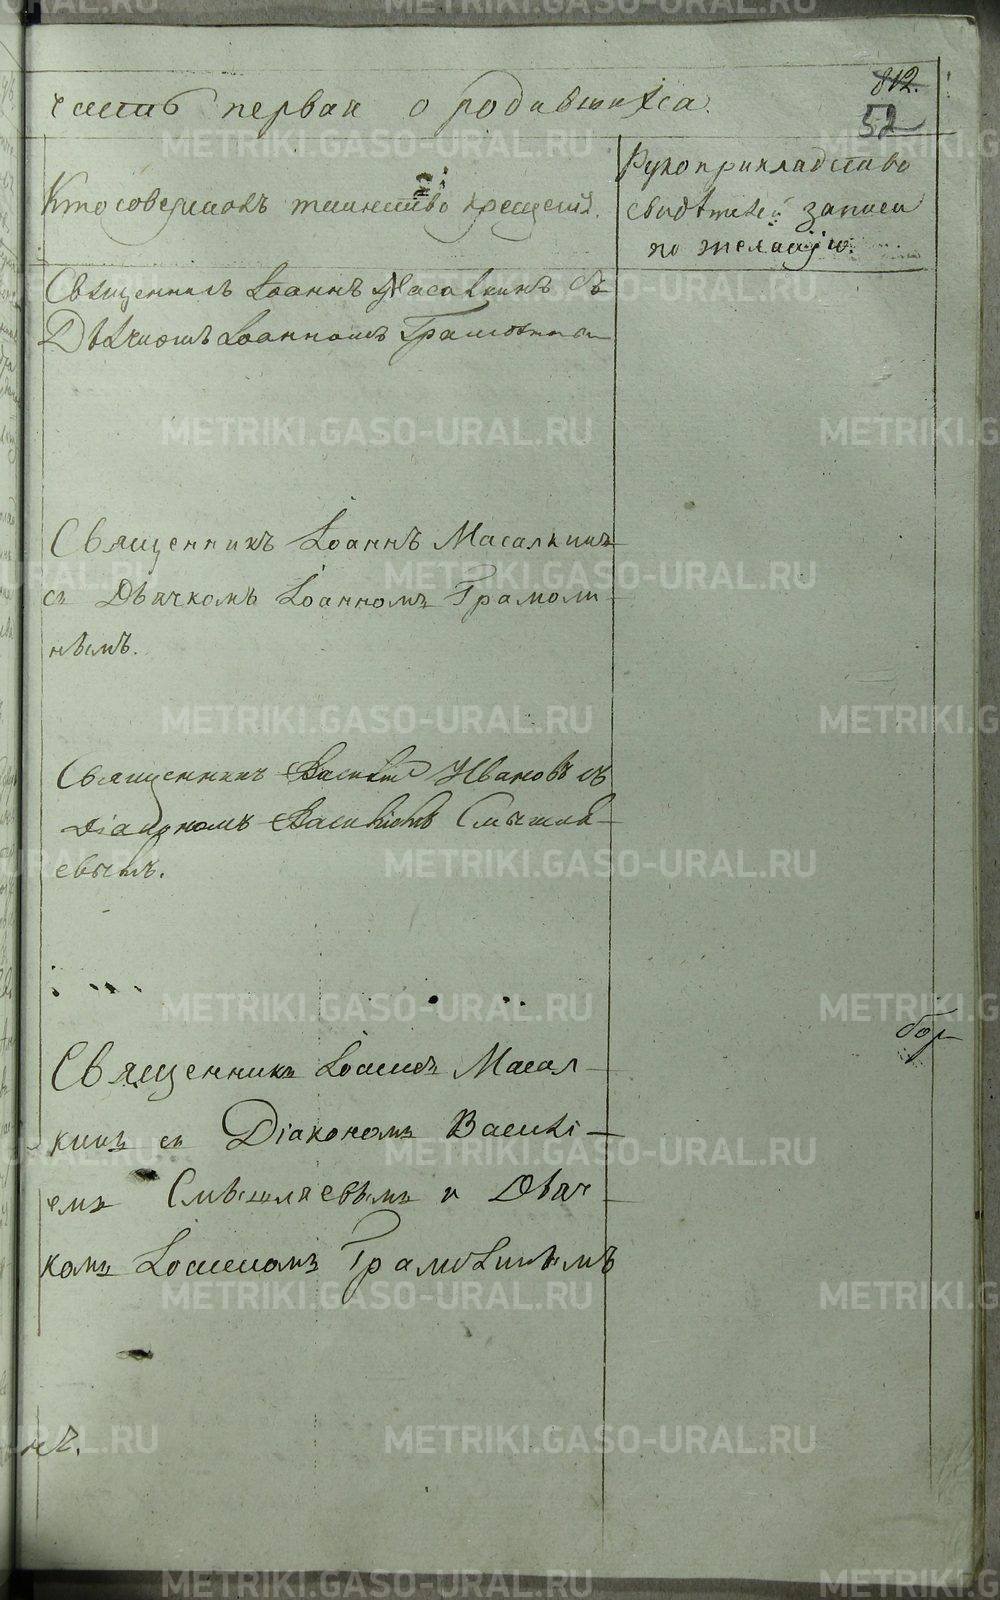 812.
часть первая о родившихся.
52
Кто совершалъ таинство крещенія.
Рукоприкладство
свидѣтелей записи
по желанію.
Священникъ Іоаннъ Масалкинъ съ
Дьячкомъ Іоанномъ
Священникъ Іоаннъ Масалкинъ
съ Дьячкомъ Іоанномъ Грамоли
нымъ.
Священникъ Василій Ивановъ съ
Діакономъ Василіемъ Смышля-
евымъ.
бор
Священникъ Іоаннъ Масал-
кинъ съ Діакономъ Василі-
емъ Смышляевымъ и Дьяч-
комъ Іоанномъ Грамолинымъ
нъ.
METRIKI.GASO-URAL.RU